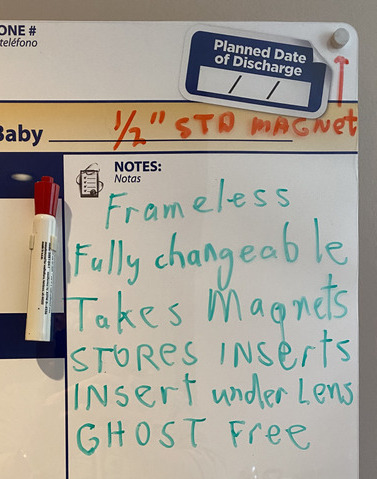 ONE #
teléfono
Planned Date
of Discharge
/ /
Baby
1/2" STD MAGNET
NOTES:
Notas
Frameless
Fully changeable
Takes Magnets
STORES INserts
INsert under Lens
GHOST Free